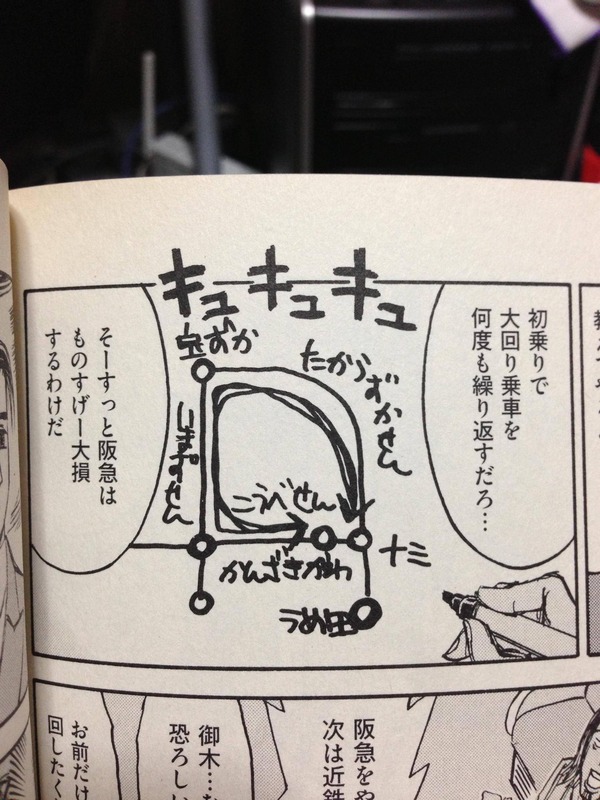 初乗りで
大回り乗車を
何度も繰り返すだろ…
キュキュキュ
宝ずか
たからずかせん
いまずせん
こうべせん
十三
かんざきがわ
うめ田
そーすっと阪急は
ものすげー大損
するわけだ
阪急をや
次は近鉄
御木…
恐ろしい
お前だけ
回したく